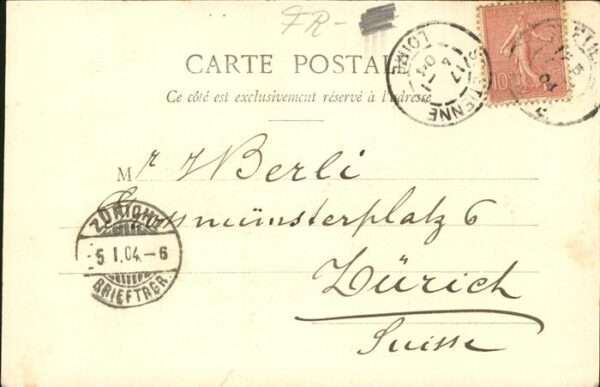 FR-
CARTE POSTALE
Ce côté est exclusivement réservé à l'adresse
Mr Berli
Grossmünsterplatz 6
Zürich
Suisse
ZÜRICH
5 I.04.-6
BRIEFTRGR.
ETIENNE
LOIRE
10
04